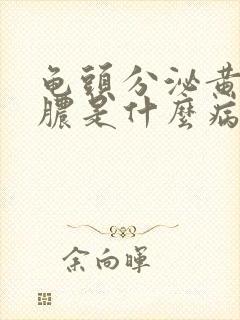 龟頭分泌黄
膿是什麼病
余向暉